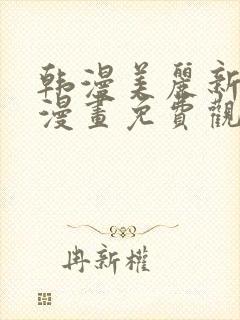 韩漫美麗新
漫畫免費觀
冉新權